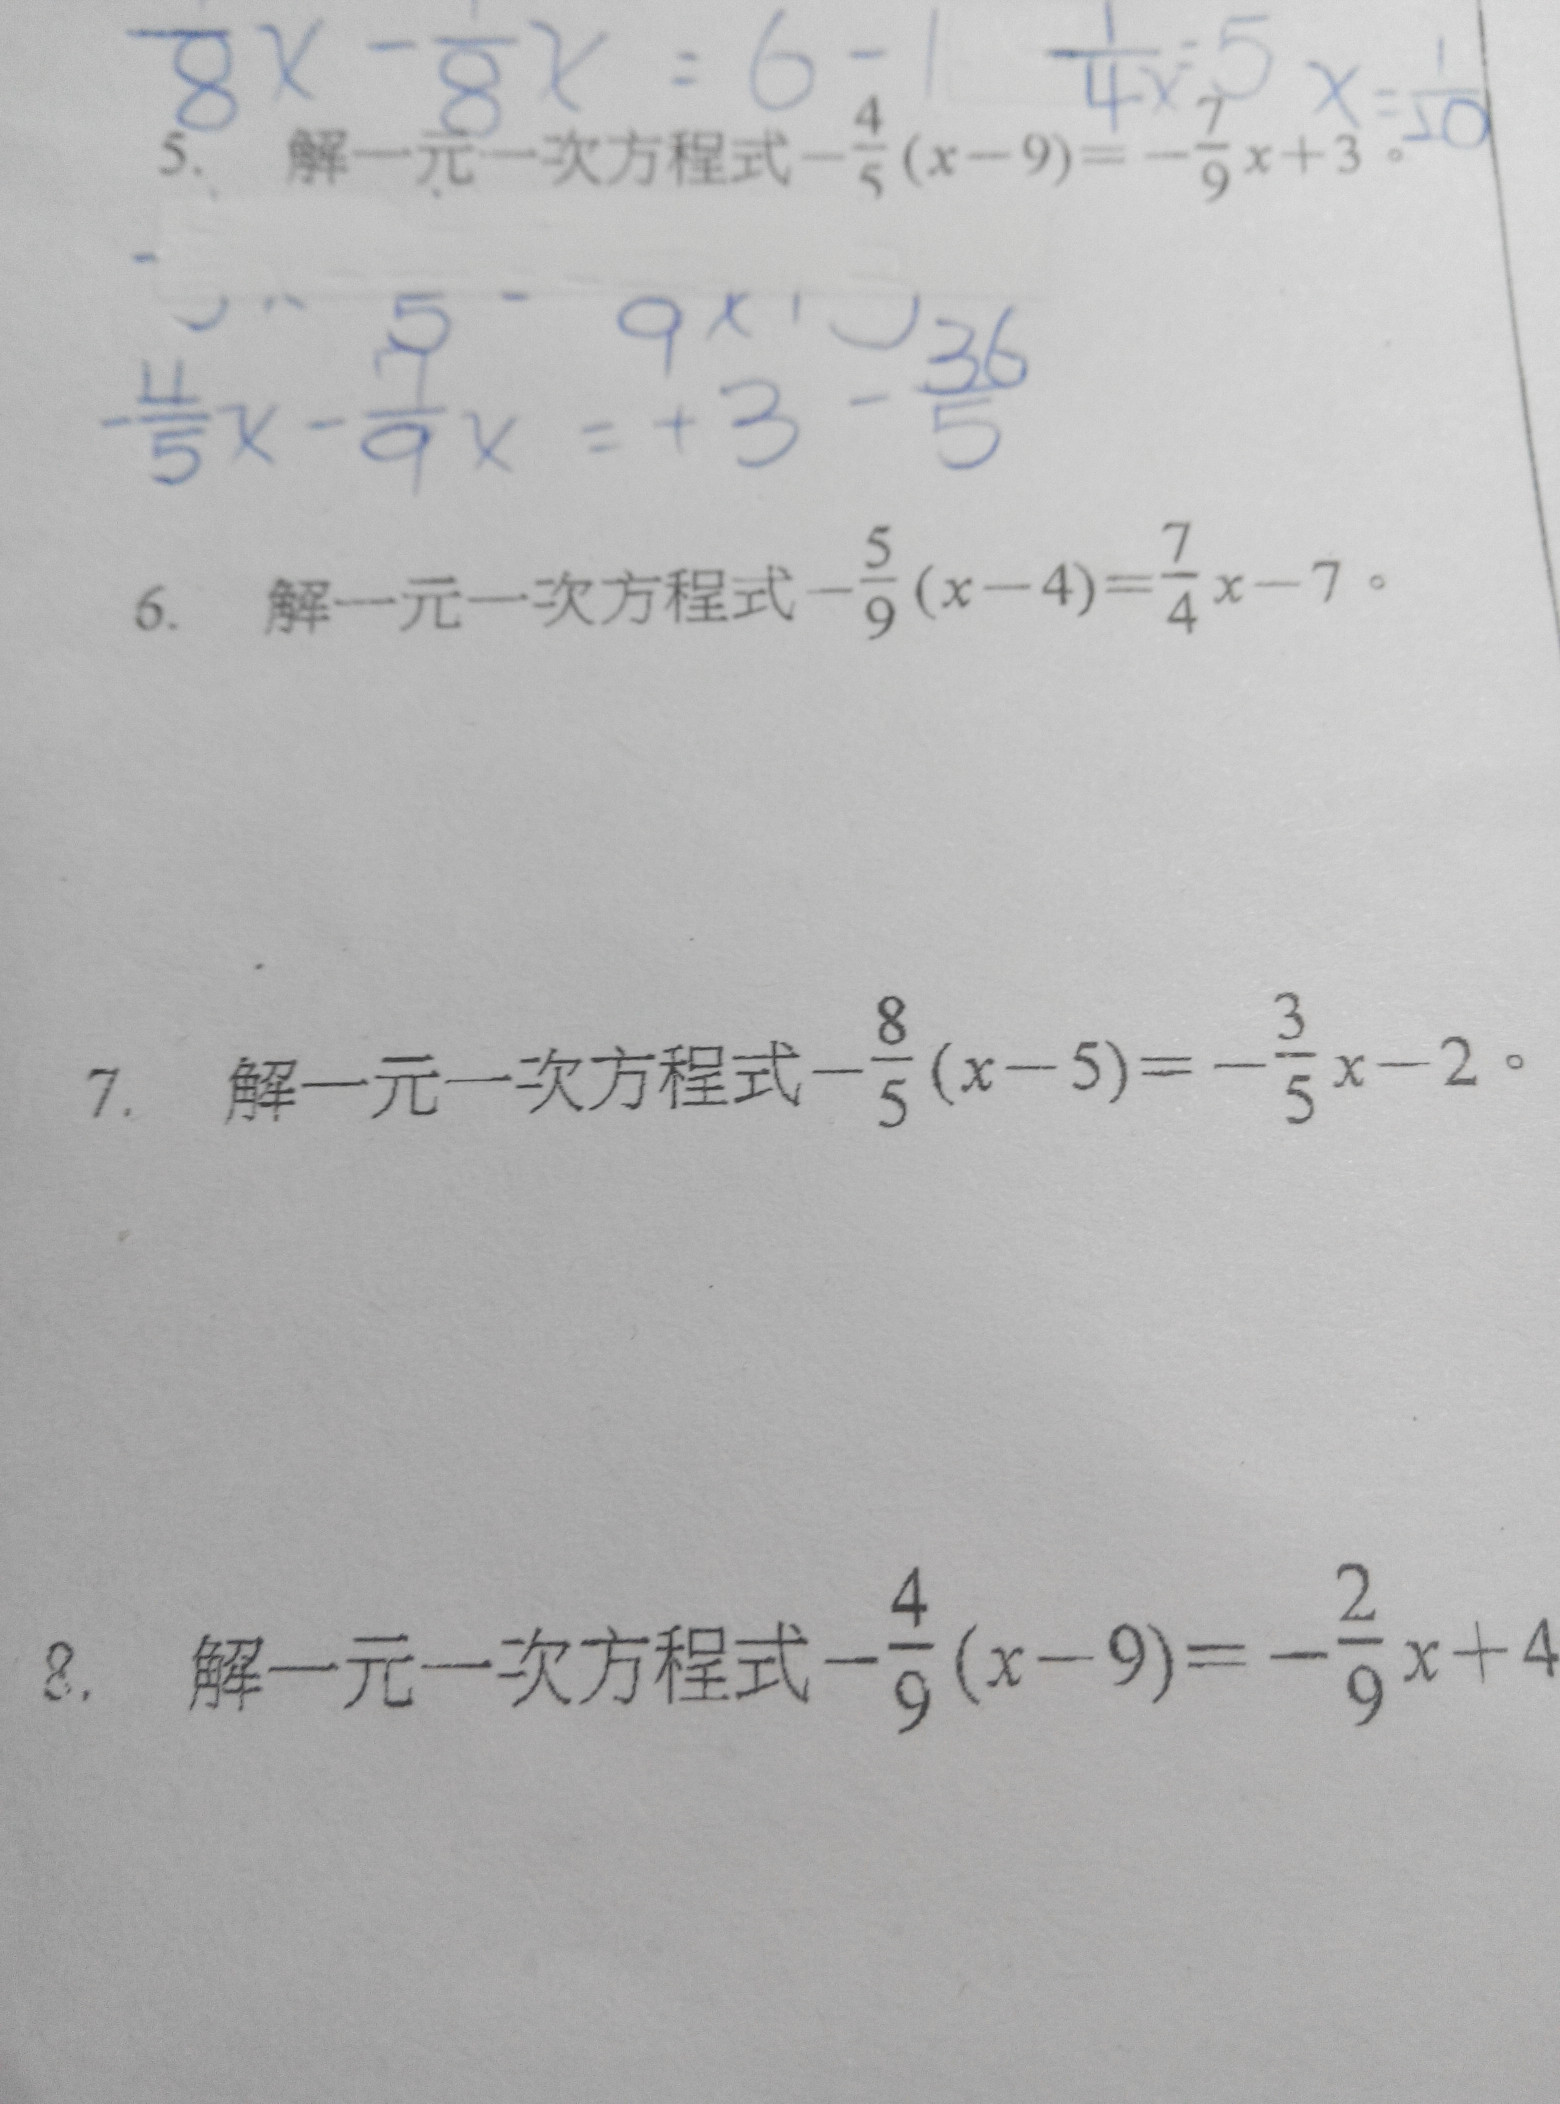 /8 x - 1/8 x = 6 - 1  1/4 x = 5  x = 1/20
5. 解一元一次方程式 -4/5 (x-9) = -7/9 x+3。
5 - 9 x
-4/5 x - 7/9 x = +3 - 36/5
6. 解一元一次方程式 -5/9 (x-4) = 7/4 x-7。
7. 解一元一次方程式 -8/5 (x-5) = -3/5 x-2。
8. 解一元一次方程式 -4/9 (x-9) = -2/9 x+4